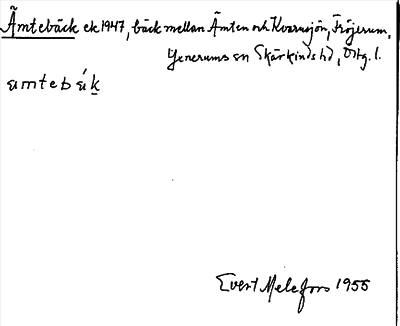 Ämtebäck ek 1947, bäck mellan Ämten och Kvarnsjön, Fröjerum,
Yxnerums sn Skärkinds hd, Östg. l.
ɛmtebɛ́k
Evert Melefors 1955